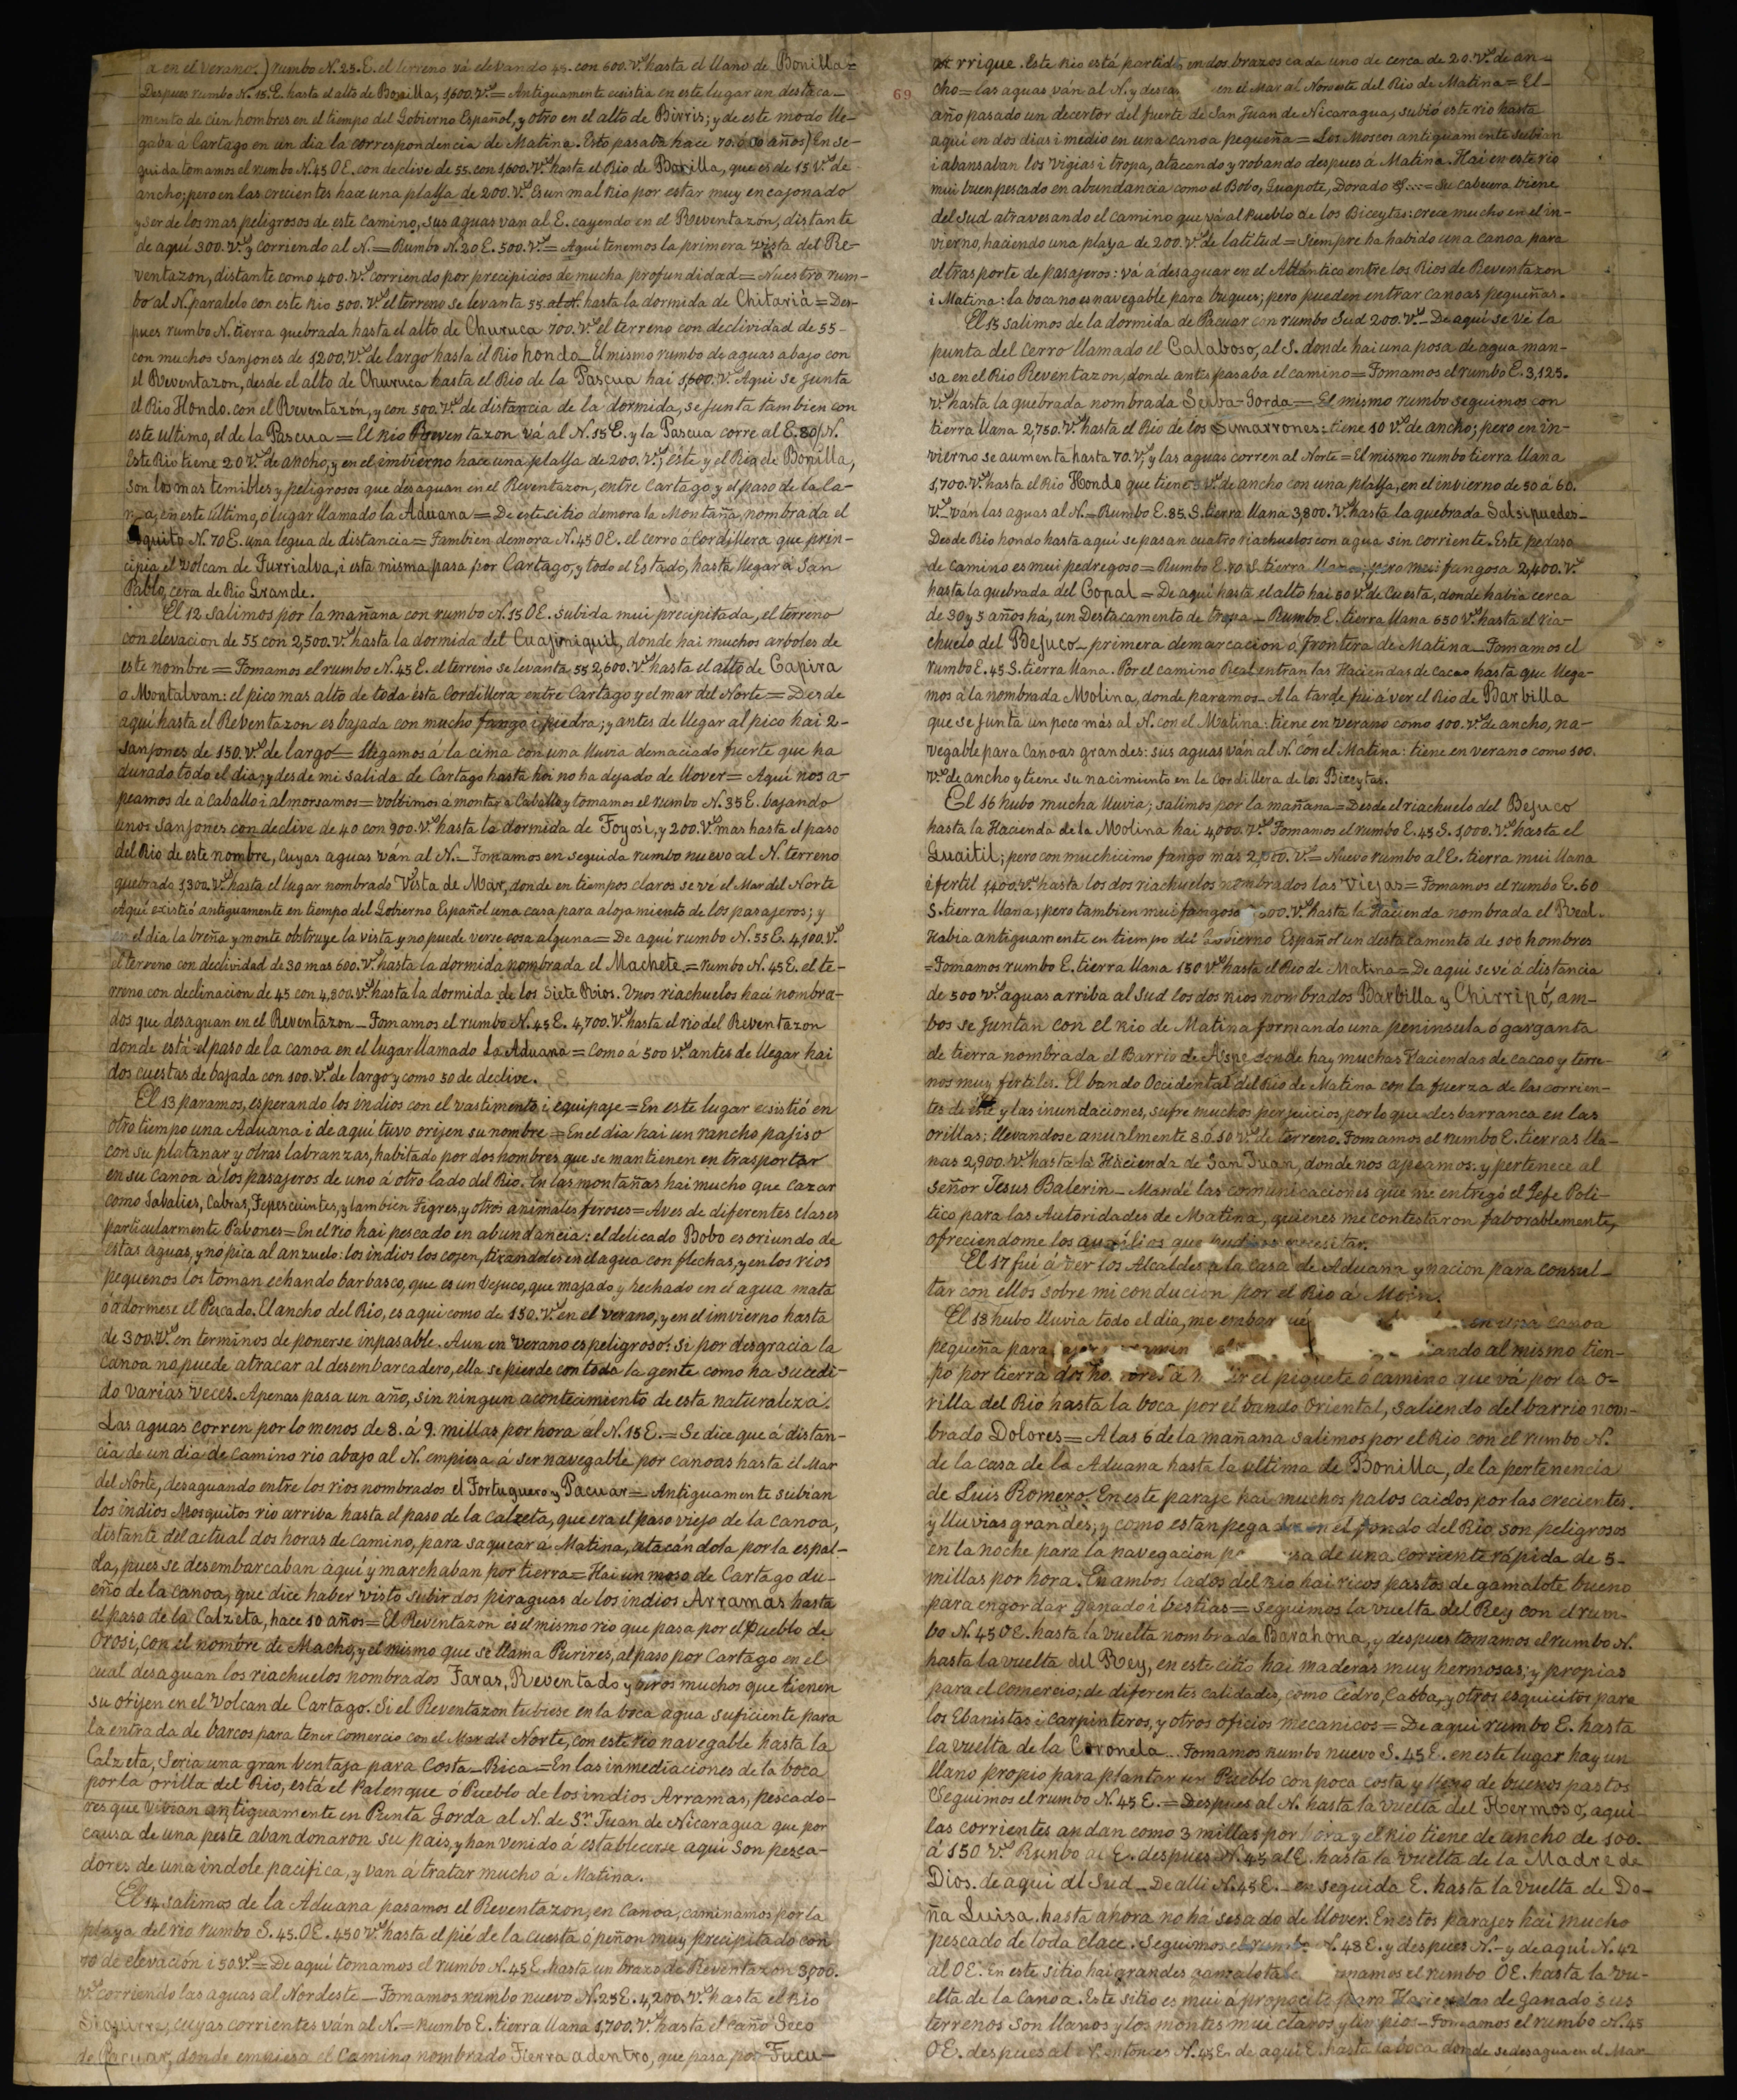 a en el verano.) rumbo N. 25. E. el terreno vá elevando 45. con 600. v.s hasta el llano de Bonilla=
Despues rumbo N. 15. E. hasta el alto de Bonilla, 1,600. v.s = Antiguamente ecsistia en este lugar un destaca-
mento de cien hombres en el tiempo del Gobierno Español, y otro en el alto de Birris; y de este modo lle-
gaba á Cartago en un dia la correspondencia de Matina. Esto pasaba hace 70. ó 80 años) En se-
guida tomamos el rumbo N. 45 OE. con declive de 55. con 1,600. v.s hasta el Rio de Bonilla, que es de 15 v.s de
ancho; pero en las crecientes hace una plalla de 200. v.s Es un mal Rio por estar muy encajonado
y ser de los mas peligrosos de este camino, sus aguas van al E. cayendo en el Reventazon, distante
de aquí 300. v.s y corriendo al N. = Rumbo N. 20 E. 500. v.s = Aquí tenemos la primera vista del Re-
ventazon, distante como 400. v.s corriendo por precipicios de mucha profundidad = Nuestro rum-
bo al N. paralelo con este Rio 500. v.s el terreno se levanta 55 al N. hasta la dormida de Chitariá = Des-
pues rumbo N. tierra quebrada hasta el alto de Churuca 700. v.s el terreno con declividad de 55-
con muchos Sanjones de 1200. v.s de largo hasta el Rio hondo_ El mismo rumbo de aguas abajo con
el Reventazon, desde el alto de Churuca hasta el Rio de la Pascua hai 1,600. v.s Aqui se junta
el Rio Hondo. con el Reventazón, y con 500. v.s de distancia de la dormida, se junta tambien con
este ultimo, el de la Pascua = El Rio Reventazon vá al N. 15 E. y la Pascua corre al E. 80/N.
Este Rio tiene 20 v.s de ancho, y en el imbierno hace una plalla de 200. v.s; éste y el Rio de Bonilla,
son los mas temibles y peligrosos que desaguan en el Reventazon, entre Cartago y el paso de la ca-
noa, en este último, ó lugar llamado la Aduana = De este sitio demora la Montaña, nombrada el
N. 70 E. una legua de distancia = Tambien demora N. 45 OE. el cerro ó Cordillera que prin-
cipia el volcan de Turrialva, i esta misma pasa por Cartago, y todo el Estado, hasta llegar á San
Pablo, cerca de Rio Grande.
El 12 salimos por la mañana con rumbo N. 15 OE. subida mui precipitada, el terreno
con elevacion de 55 con 2,500. v.s hasta la dormida del Cuajiniquil, donde hai muchos arboles de
este nombre = Tomamos el rumbo N. 45 E. el terreno se levanta 55 2,600. v.s hasta el alto de Capira
o Montalvan: el pico mas alto de toda ésta Cordillera entre Cartago y el mar del Norte = Desde
aquí hasta el Reventazon es bajada con mucho fango i piedra; y antes de llegar al pico hai 2-
sanjones de 150. v.s de largo = llegamos á la cima con una lluvia demaciado fuerte que ha
durado todo el dia, y desde mi salida de Cartago hasta hoi no ha dejado de llover = Aquí nos a-
peamos de á caballo i almorsamos = volbimos á montar á Caballo y tomamos el rumbo N. 35 E. bajando
unos Sanjones con declive de 40 con 900. v.s hasta la dormida de Toyosi, y 200. v.s mas hasta el paso
del Rio de este nombre, cuyas aguas ván al N._ Tomamos en seguida rumbo nuevo al N. terreno
quebrado 1,300. v.s hasta el lugar nombrado Vista de Mar, donde en tiempos claros se vé el Mar del Norte
Aquí existió antiguamente en tiempo del Gobierno Español una casa para alojamiento de los pasajeros; y
en el dia la breña y monte obstruye la vista y no puede verse cosa alguna = De aquí rumbo N. 55 E. 4,100. v.s
el terreno con declividad de 30 mas 600. v.s hasta la dormida nombrada el Machete. = rumbo N. 45 E. el te-
rreno con declinacion de 45 con 4,800. v.s hasta la dormida de los Siete Rios. Unos riachuelos haci nombra-
dos que desaguan en el Reventazon_ Tomamos el rumbo N. 45 E. 4,700. v.s hasta el rio del Reventazon
donde está el paso de la canoa en el lugar llamado la Aduana = Como á 500 v.s antes de llegar hai
dos cuestas de bajada con 100. v.s de largo y como 50 de declive.
El 13 paramos, esperando los indios con el vastimento i equipaje = En este lugar ecsistió en
otro tiempo una Aduana i de aquí tuvo orijen su nombre = En el dia hai un rancho pajiso
con su platanar y otras labranzas, habitado por dos hombres que se mantienen en trasportar
en su canoa á los pasajeros de uno á otro lado del Rio. En las montañas hai mucho que cazar
como Sabalies, Cabras, Tepescuintes, y tambien Tegres, y otros animales feroses = Aves de diferentes clases
particularmente Pabones = En el rio hai pescado en abundancia: el delicado Bobo es oriundo de
estas aguas, y no pica al anzuelo: los indios los cojen, tirandoles en el agua con flechas, y en los rios
pequenos los toman echando barbasco, que es un vejuco, que majado y hechado en el agua mata
ó adormese el Pescado. El ancho del Rio, es aqui como de 150. v.s en el verano, y en el imvierno hasta
de 300. v.s en terminos de ponerse inpasable. Aun en Verano es peligroso: si por desgracia la
canoa no puede atracar al desembarcadero, ella se pierde con toda la gente como ha sucedi-
do varias veces. Apenas pasa un año, sin ningun acontecimiento de esta naturaleza.
Las aguas corren por lo menos de 8. á 9. millas por hora al N. 15 E. = Se dice que á distan-
cia de un dia de camino rio abajo al N. empiesa á ser navegable por canoas hasta el Mar
del Norte, desaguando entre los rios nombrados el Tortuguero y Pacuar = Antiguamente subian
los indios Mosquitos rio arriba hasta el paso de la Calzeta, que era el paso viejo de la canoa,
distante del actual dos horas de camino, para saquear á Matina, atacandola por la espal-
da, pues se desembarcaban aquí y marchaban por tierra = Hai un moso de Cartago du-
eño de la canoa, que dice haber visto subir dos piraguas de los indios Arramas hasta
el paso de la Calzeta, hace 10 años = El Reventazon es el mismo rio que pasa por el Pueblo de
Orosi, con el nombre de Macho, y el mismo que se llama Purires, al paso por Cartago en el
cual desaguan los riachuelos nombrados Taras, Reventado y otros muchos que tienen
su orijen en el Volcan de Cartago. Si el Reventazon tubiese en la boca agua suficiente para
la entrada de barcos para tener Comercio con el Mar del Norte, con este rio navegable hasta la
Calzeta, Seria una gran ventaja para Costa-Rica = En las inmediaciones de la boca
por la orilla del Rio, está el Palenque ó Pueblo de los indios Arramas, pescado-
res que vivian antiguamente en Punta Gorda al N. de Sn. Juan de Nicaragua que por
causa de una peste abandonaron su pais, y han venido á establecerse aquí son pesca-
dores de una indole pacifica, y van á tratar mucho á Matina.
El 14 salimos de la Aduana pasamos el Reventazon, en Canoa, caminamos por la
playa del rio rumbo S. 45. OE. 450 v.s hasta el pié de la cuesta ó peñon muy precipitado con
70 de elevación i 50 v.s = De aquí tomamos el rumbo N. 45 E. hasta un brazo de Reventazon 3,000.
v.s corriendo las aguas al Nordeste_ Tomamos rumbo nuevo N. 25 E. 4,200. v.s hasta el Rio
Siquirre, cuyas corrientes ván al N. = rumbo E. tierra llana 1,700. v.s hasta el Caño Seco
de Pacuar, donde empiesa el Camino nombrado Tierra adentro, que pasa por Tucu-
69
rrique. Este Rio está partido en dos brazos cada uno de cerca de 20. v.s de an-
cho = las aguas ván al N. y descar en el Mar al Noreste del Rio de Matina = El-
año pasado un decertor del fuerte de San Juan de Nicaragua, subió este rio hasta
aquí en dos dias i medio en una canoa pequeña = Los Moscos antiguamente subian
i abansaban los vigias i tropa, atacando y robando despues á Matina. Hai en este rio
mui buen pescado en abundancia como el Bobo, Guapote, Dorado &...= Su cabecera biene
del Sud atravesando el camino que vá al Pueblo de los Biceytas: crece mucho en el in-
vierno, haciendo una playa de 200. v.s de latitud = Siempre ha habido una canoa para
el trasporte de pasajeros: vá á desaguar en el Atlántico entre los Rios de Reventazon
i Matina: la boca no es navegable para buques; pero pueden entrar canoas pequeñas.
El 15 salimos de la dormida de Pacuar con rumbo Sud 200. v.s_ De aquí se vé la
punta del cerro llamado el Calaboso, al S. donde hai una posa de agua man-
sa en el Rio Reventazon, donde antes pasaba el camino = Tomamos el rumbo E. 3,125.
v.s hasta la quebrada nombrada Seiba-Gorda = El mismo rumbo seguimos con
tierra llana 2,750. v.s hasta el Rio de los Simarrones: tiene 10 v.s de ancho; pero en in-
vierno se aumenta hasta 70. v.s, y las aguas corren al Norte = El mismo rumbo tierra llana
1,700. v.s hasta el Rio Hondo que tiene v.s de ancho con una plalla, en el invierno de 50 á 60.
v.s_ ván las aguas al N. = Rumbo E. 85. S. tierra llana 3,800. v.s hasta la quebrada Salsipuedes_
Desde Rio hondo hasta aquí se pasan cuatro riachuelos con agua sin corriente. Este pedaso
de camino es mui pedregoso = Rumbo E. 70. S. tierra llana; pero mui fangosa 2,400. v.s
hasta la quebrada del Copal = De aquí hasta el alto hai 50 v.s de cuesta, donde habia cerca
de 30 y 5 años há, un Destacamento de tropa_ Rumbo E. tierra llana 650 v.s hasta el ria-
chuelo del Bejuco_ primera demarcacion ó frontera de Matina_ Tomamos el
rumbo E. 45 S. tierra llana. Por el camino Real entran las Haciendas de Cacao hasta que llega-
mos á la nombrada Molina, donde paramos_ A la tarde fui á ver el Rio de Barbilla
que se junta un poco más al N. con el Matina: tiene en verano como 100. v.s de ancho, na-
vegable para Canoas grandes: sus aguas ván al N. con el Matina: tiene en verano como 100.
v.s de ancho y tiene su nacimiento en la Cordillera de los Biceytas.
El 16 hubo mucha lluvia; salimos por la mañana = Desde el riachuelo del Bejuco
hasta la Hacienda de la Molina hai 4,000. v.s Tomamos el rumbo E. 45 S. 1,000. v.s hasta el
Guaitil; pero con muchicimo fango más 2,500. v.s = Nuevo rumbo al E. tierra mui llana
i fertil 1,400. v.s hasta los dos riachuelos nombrados las Viejas = Tomamos el rumbo E. 60
S. tierra llana; pero tambien mui fangosa 00. v.s hasta la Hacienda nombrada el Real.
Habia antiguamente en tiempo del Govierno Español un destacamento de 100 hombres
= Tomamos rumbo E. tierra llana 150 v.s hasta el Rio de Matina = De aquí se vé á distancia
de 500 v.s aguas arriba al Sud los dos rios nombrados Barbilla y Chirripó, am-
bos se juntan con el Rio de Matina formando una peninsula ó garganta
de tierra nombrada el Barrio de donde hay muchas Haciendas de cacao y terre-
nos muy fértiles. El bando Occidental del Rio de Matina con la fuerza de las corrien-
tes de este y las inundaciones, sufre muchos perjuicios, por lo que desbarranca en las
orillas; llevandose anualmente 8. ó 10 v.s de terreno. Tomamos el rumbo E. tierras lla-
nas 2,900. v.s hasta la Hacienda de San Juan, donde nos apeamos: y pertenece al
Señor Jesus Balerin_ Mandé las comunicaciones que me entregó el Jefe Poli-
tico para las Autoridades de Matina, quienes me contestaron faborablemente,
ofreciendome los ausilios que pudiese necesitar.
El 17 fuí á ver los Alcaldes, a la casa de Aduana y nacion para consul-
tar con ellos sobre mi conducion por el Rio á Moin.
El 18 hubo lluvia todo el dia, me embarqué en una canoa
pequeña para ando al mismo tien-
po por tierra dos hombres á el piquete ó camino que vá por la o-
rilla del Rio hasta la boca por el bando Oriental, saliendo del barrio nom-
brado Dolores = A las 6 de la mañana salimos por el Rio con el rumbo N.
de la casa de la Aduana hasta la ultima de Bonilla, de la pertenencia
de Luis Romero. En este paraje hai muchos palos caidos por las crecientes.
y lluvias grandes; y como están pegados en el fondo del Rio son peligrosos
en la noche para la navegacion de una corriente rápida de 5-
millas por hora. En ambos lados del Rio hai ricos pastos de gamalote bueno
para engordar ganado i bestias = seguimos la vuelta del Rey con el rum-
bo N. 45 OE. hasta la vuelta nombrada Barahona, y despues tomamos el rumbo N.
hasta la vuelta del Rey, en este citio hai maderas muy hermosas; y propias
para el comercio; de diferentes calidades, como Cédro, Caoba, y otros esquicitos para
los Ebanistas i Carpinteros, y otros oficios mecanicos = De aqui rumbo E. hasta
la vuelta de la Coronela_ Tomamos rumbo nuevo S. 45 E. en este lugar hay un
llano propio para plantar un Pueblo con poca costa y lleno de buenos pastos
Seguimos el rumbo N. 45 E. = Despues al N. hasta la vuelta del Hermoso, aquí-
las corrientes andan como 3 millas por hora y el Rio tiene de ancho de 100.
á 150 v.s Rumbo al E. despues N. 45 al E. hasta la vuelta de la Madre de
Dios. de aqui al Sud_ De alli N. 45 E._ en seguida E. hasta la vuelta de Do-
ña Luisa. hasta ahora no há sesado de llover. En estos parajes hai mucho
pescado de toda clace. Seguimos el rumbo N. 48 E. y despues N.- y de aquí N. 42
al OE. en este sitio hai grandes Tomamos el rumbo OE. hasta la vu-
elta de la Canoa. Este sitio es mui á proposito para Haciendas de Ganado sus
terrenos son llanos y los montes mui claros y limpios_ Tomamos el rumbo N. 45
OE. despues al N. entonces N. 45 E. de aqui E. hasta la boca donde se desagua en el Mar